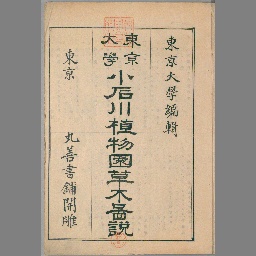 東京大學編輯
東京
大學
小石川植物園草木圖說
東京 丸善書鋪開雕